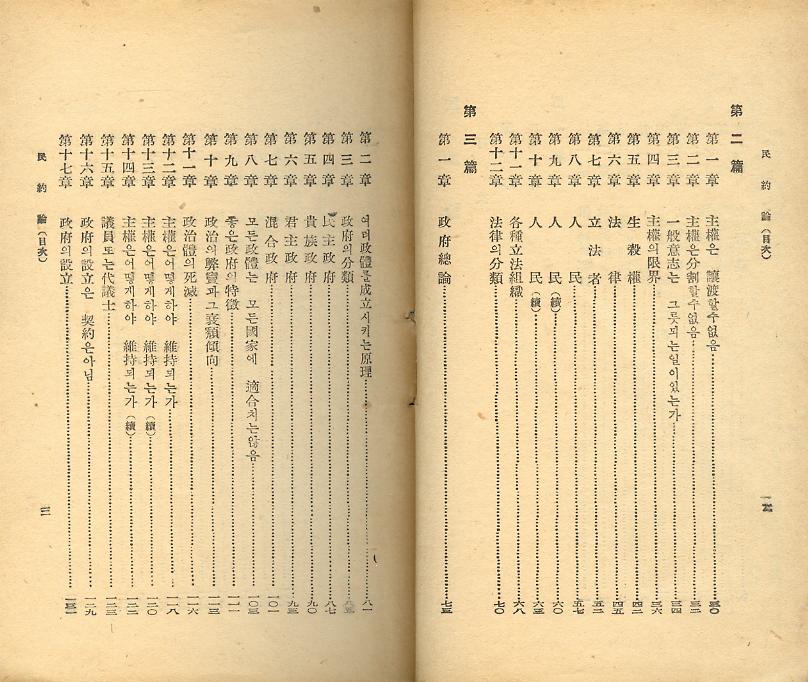 民約論(目次)
第二篇
第一章 主權은 讓渡할수없음 三〇
第二章 主權은分割할수없음 三二
第三章 一般意志는 그릇되는일이있는가 三四
第四章 主權의限界 三六
第五章 生殺權 四二
第六章 法律 四五
第七章 立法者 五二
第八章 人民 五七
第九章 人民(續) 六〇
第十章 人民(續) 六三
第十一章 各種立法組織 六八
第十二章 法律의分類 七〇
第三篇
第一章 政府總論 七三
第二章 여러政體를成立시키는原理 八一
第三章 政府의分類
第四章 民主政府 八七
第五章 貴族政府 九〇
第六章 君主政府 九三
第七章 混合政府 一〇一
第八章 모든政體는 모든國家에 適合치는않음 一〇三
第九章 좋은政府의特徵 一一一
第十章 政治의弊竇과그衰頹傾向 一一三
第十一章 政治體의死滅 一一六
第十二章 主權은어떻게하야 維持되는가 一一八
第十三章 主權은어떻게하야 維持되는가(續) 一二〇
第十四章 主權은어떻게하야 維持되는가(續) 一二二
第十五章 議員또는代議士 一二三
第十六章 政府의設立은 契約은아님 一二九
第十七章 政府의設立 一三一
民約論(目次)
三